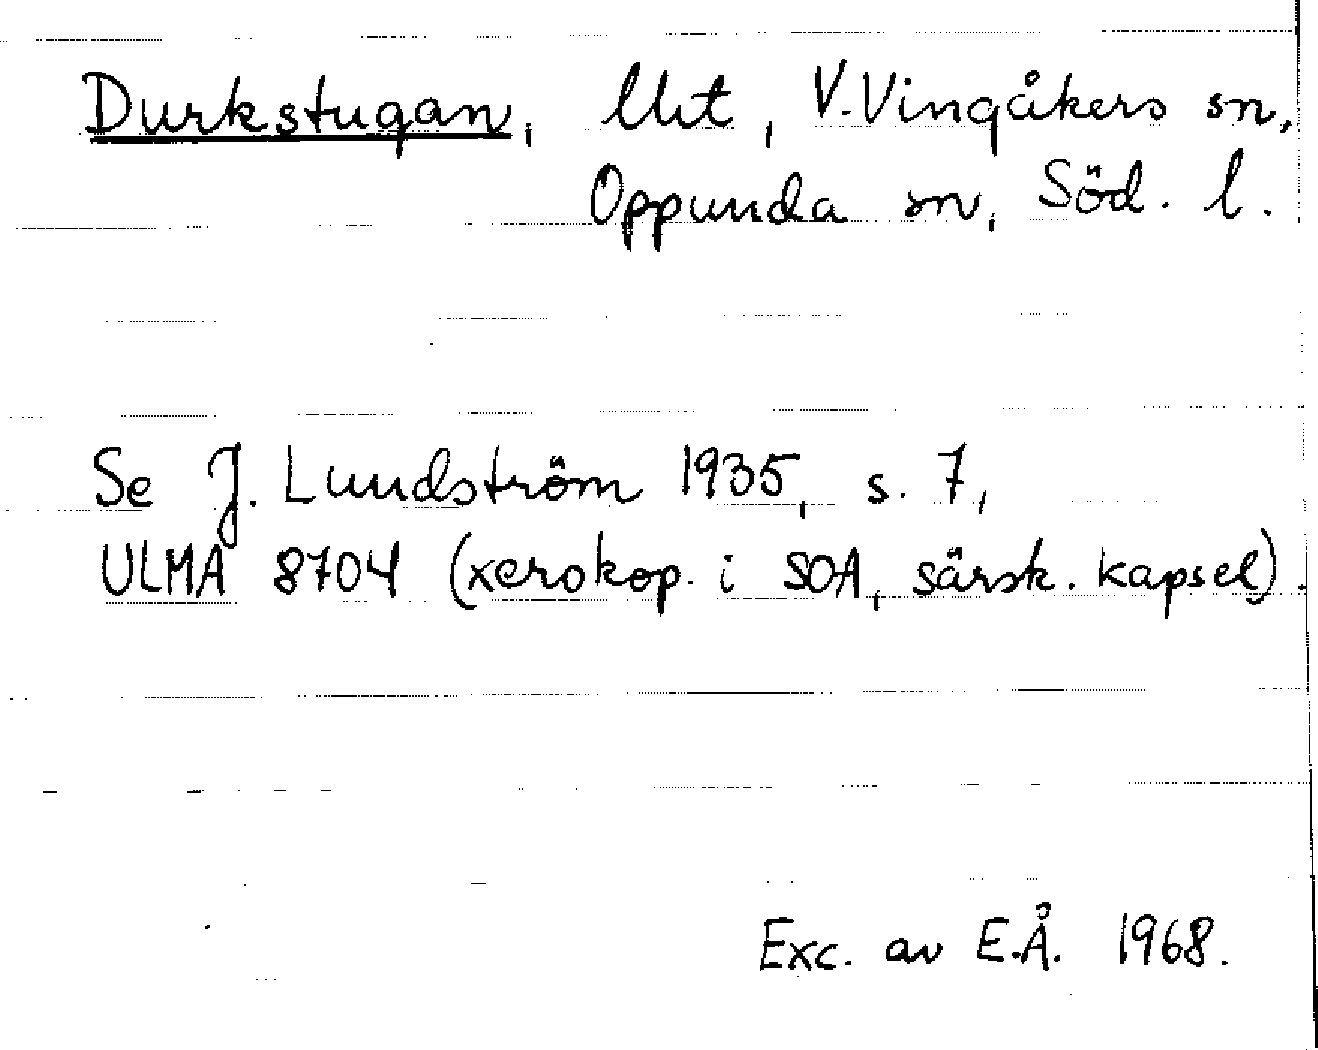 Durkstugan, lht, V. Vingåkers sn,
Oppunda sn, Söd. l.
Se J. Lundström 1935, s. 7,
ULMA 8704 (xerokop. i SOA, särsk. kapsel).
Exc. av E.Å. 1968.